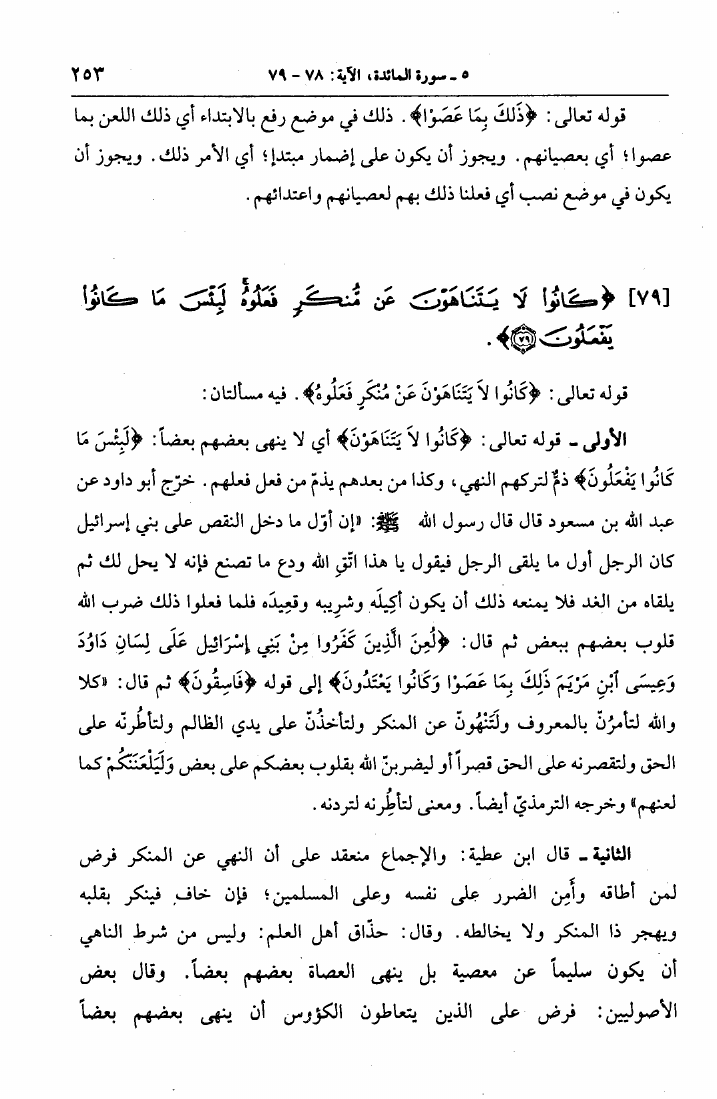 ٥ ـ سورة المائدة، الآية: ٧٨ - ٧٩ ٢٥٣
قوله تعالى: ﴿ذَلِكَ بِمَا عَصَوْا﴾. ذلك في موضع رفع بالابتداء أي ذلك اللعن بما
عصوا؛ أي بعصيانهم. ويجوز أن يكون على إضمار مبتدإ؛ أي الأمر ذلك. ويجوز أن
يكون في موضع نصب أي فعلنا ذلك بهم لعصيانهم واعتدائهم.
[٧٩] ﴿كَانُوا لَا يَتَنَاهَوْنَ عَن مُّنكَرٍ فَعَلُوهُۚ لَبِئْسَ مَا كَانُوا
يَفْعَلُونَ ۝٧٩﴾.
قوله تعالى: ﴿كَانُوا لاَ يَتَنَاهَوْنَ عَنْ مُنْكَرٍ فَعَلُوهُ﴾. فيه مسألتان:
الأولى ـ قوله تعالى: ﴿كَانُوا لاَ يَتَنَاهَوْنَ﴾ أي لا ينهى بعضهم بعضاً: ﴿لَبِئْسَ مَا
كَانُوا يَفْعَلُونَ﴾ ذمٌّ لتركهم النهي، وكذا من بعدهم يذمّ من فعل فعلهم. خرّج أبو داود عن
عبد الله بن مسعود قال قال رسول الله ﷺ: «إن أوّل ما دخل النقص على بني إسرائيل
كان الرجل أول ما يلقى الرجل فيقول يا هذا اتّقِ الله ودع ما تصنع فإنه لا يحل لك ثم
يلقاه من الغد فلا يمنعه ذلك أن يكون أكِيلَه وشرِيبه وقعِيدَه فلما فعلوا ذلك ضرب الله
قلوب بعضهم ببعض ثم قال: ﴿لُعِنَ الَّذِينَ كَفَرُوا مِنْ بَنِي إِسْرَائِيلَ عَلَى لِسَانِ دَاوُدَ
وَعِيسَى ٱبْنِ مَرْيَمَ ذَلِكَ بِمَا عَصَوْا وَكَانُوا يَعْتَدُونَ﴾ إلى قوله ﴿فَاسِقُونَ﴾ ثم قال: «كلا
والله لتأمرُنّ بالمعروف ولَتَنْهَونّ عن المنكر ولتأخذُنّ على يدي الظالم ولتأطُرنّه على
الحق ولتقصرنه على الحق قصراً أو ليضربنّ الله بقلوب بعضكم على بعض وَلَيَلْعَنَنَّكُمْ كما
لعنهم» وخرجه الترمذيّ أيضاً. ومعنى لتأطِرنه لتردنه.
الثانية ـ قال ابن عطية: والإجماع منعقد على أن النهي عن المنكر فرض
لمن أطاقه وأَمِن الضرر على نفسه وعلى المسلمين؛ فإن خاف فينكر بقلبه
ويهجر ذا المنكر ولا يخالطه. وقال: حذّاق أهل العلم: وليس من شرط الناهي
أن يكون سليماً عن معصية بل ينهى العصاة بعضهم بعضاً. وقال بعض
الأصوليين: فرض على الذين يتعاطون الكؤوس أن ينهى بعضهم بعضاً